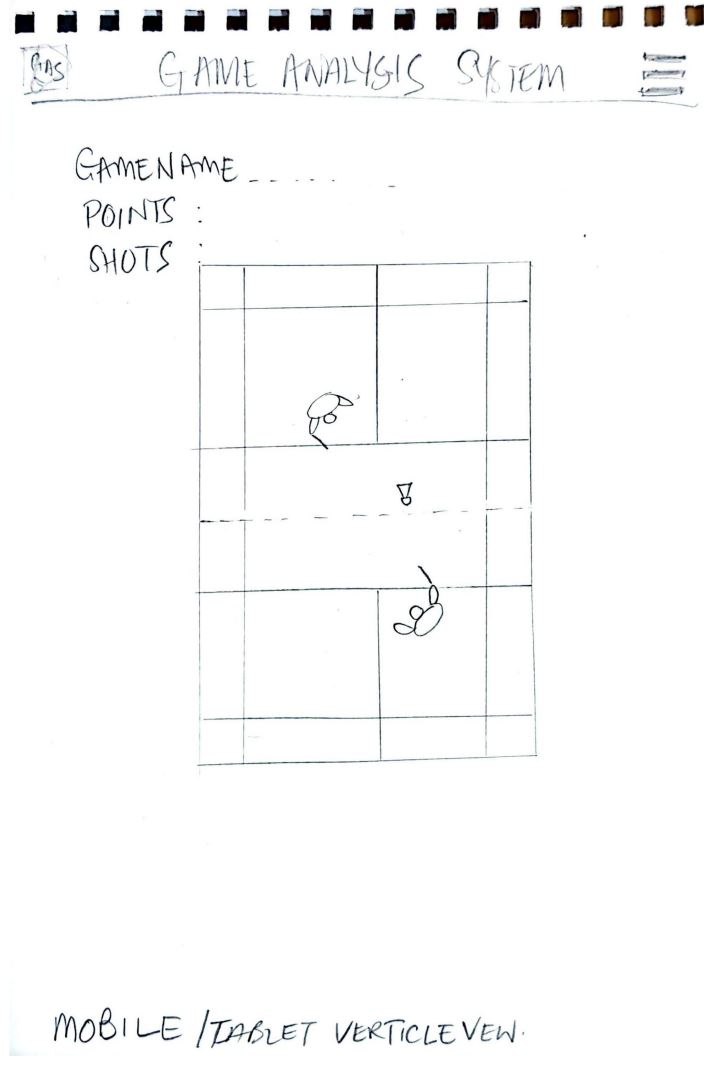 GAS
GAME ANALYSIS SYSTEM
GAMENAME _ _ . . . . . _
POINTS :
SHOTS :
MOBILE / TABLET VERTICLE VEW.